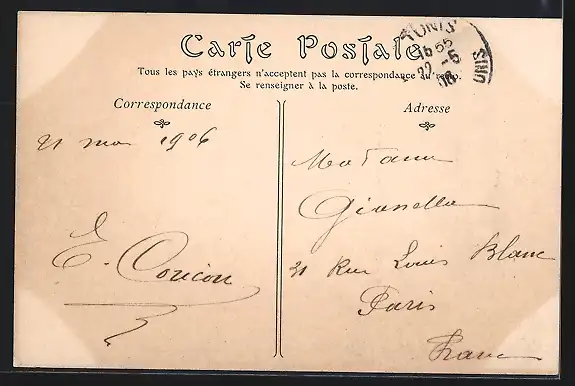 Carte Postale
Tous les pays étrangers n'acceptent pas la correspondance au recto.
Se renseigner à la poste.
TUNIS
16 55
22 -5
06
Correspondance
21 mai 1906
E. Coucou
Adresse
Madame
Gianella
31 Rue Louis Blanc
Paris
France